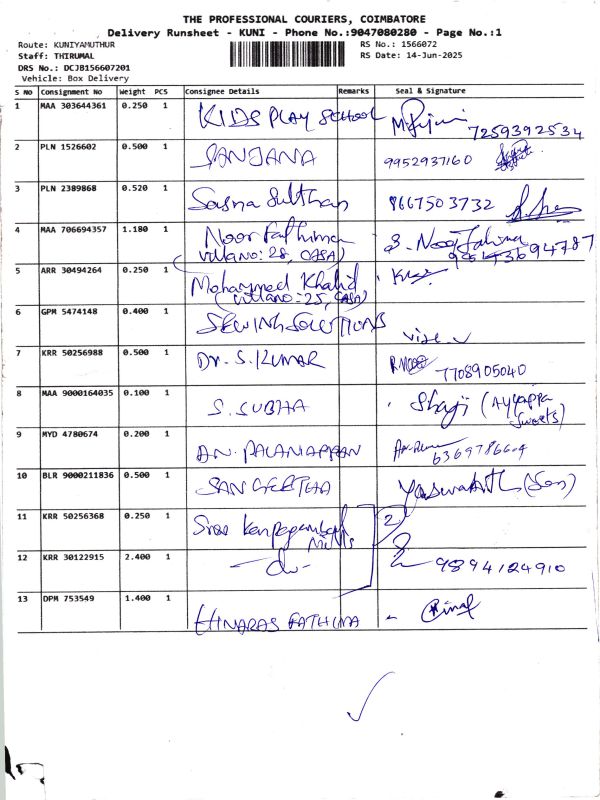 THE PROFESSIONAL COURIERS, COIMBATORE
Delivery Runsheet - KUNI - Phone No.:9047080280 - Page No.:1
Route: KUNIYAMUTHUR
Staff: THIRUMAL
DRS No.: DCJB156607201
Vehicle: Box Delivery
RS No.: 1566072
RS Date: 14-Jun-2025
S NO Consignment No Weight PCS Consignee Details Remarks Seal & Signature
1 MAA 303644361 0.250 1 KIDS PLAY SCHOOL 7259392534
2 PLN 1526602 0.500 1 SANJANA 9952937160
3 PLN 2389868 0.520 1 Sasna Sulthan 9667503732
4 MAA 706694357 1.180 1 Noor Fathima S. Noor Fathima
(villano: 28, CASA)
5 ARR 30494264 0.250 1 Mohammed Khalid
(villano:-25, CASA)
6 GPM 5474148 0.400 1 SEWING SOLUTIONS
7 KRR 50256988 0.500 1 Dr. S. KUMAR 7708905040
8 MAA 9000164035 0.100 1 S. SUBHA Shaji (Ayyappa
Sweets)
9 MYD 4780674 0.200 1 AN. PALANIAPPAN
10 BLR 9000211836 0.500 1 SANGEETHA (Son)
11 KRR 50256368 0.250 1 Sree Karpagambal 2
Mills
12 KRR 30122915 2.400 1 -do- 9894124910
13 DPM 753549 1.400 1 HINARAS FATHIMA